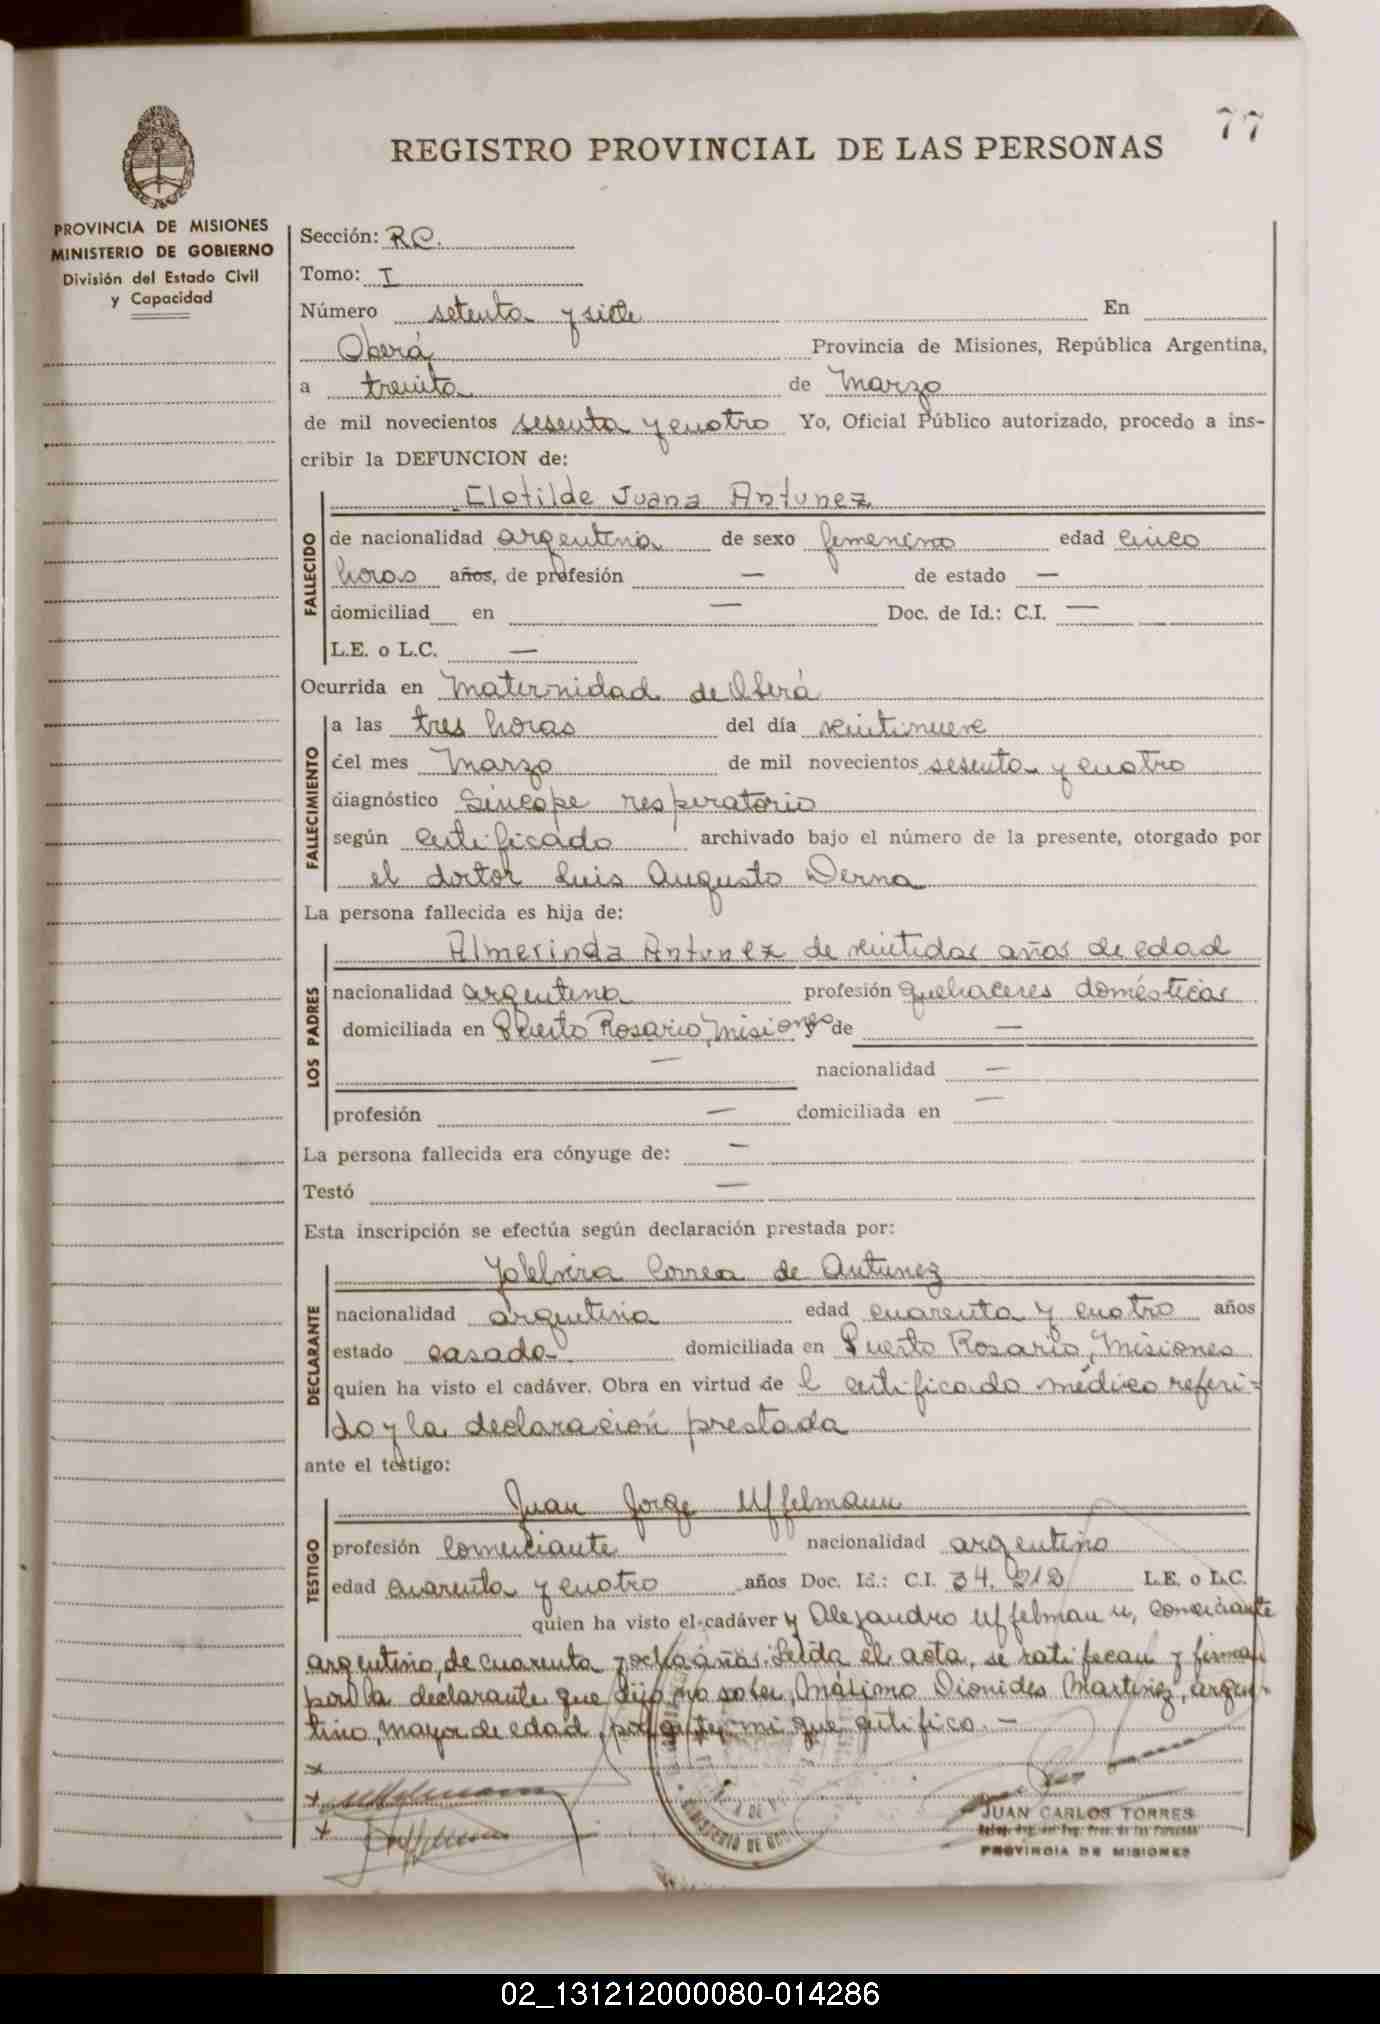 77
REGISTRO PROVINCIAL DE LAS PERSONAS
PROVINCIA DE MISIONES
MINISTERIO DE GOBIERNO
División del Estado Civil
y Capacidad
Sección: R.C.
Tomo: I
Número setenta y siete En
Oberá Provincia de Misiones, República Argentina,
a treinta de Marzo
de mil novecientos sesenta y cuatro Yo, Oficial Público autorizado, procedo a ins-
cribir la DEFUNCION de:
Clotilde Juana Antunez
FALLECIDO
de nacionalidad argentina de sexo femenino edad cinco
horas años, de profesión — de estado —
domiciliad en — Doc. de Id.: C.I. —
L.E. o L.C. —
Ocurrida en Maternidad de Oberá
FALLECIMIENTO
a las tres horas del día veintinueve
del mes Marzo de mil novecientos sesenta y cuatro
diagnóstico Síncope respiratorio
según certificado archivado bajo el número de la presente, otorgado por
el doctor Luis Augusto Derna
La persona fallecida es hija de:
LOS PADRES
Almerinda Antunez de veintidos años de edad
nacionalidad argentina profesión quehaceres domésticos
domiciliada en Puerto Rosario, Misiones y de —
— nacionalidad —
profesión — domiciliada en —
La persona fallecida era cónyuge de: —
Testó —
Esta inscripción se efectúa según declaración prestada por:
DECLARANTE
Correa de Antunez
nacionalidad argentina edad cuarenta y cuatro años
estado casada domiciliada en Puerto Rosario, Misiones
quien ha visto el cadáver. Obra en virtud de l certificado médico referi-
do y la declaración prestada
ante el testigo:
TESTIGO
Juan Jorge Uffelmann
profesión comerciante nacionalidad argentino
edad cuarenta y cuatro años Doc. Id.: C.I. 34.212 L.E. o L.C.
quien ha visto el cadáver y Alejandro Uffelmann, comerciante
argentino, de cuarenta y ocho años. Leída el acta, se ratifican y firman
por la declarante que dijo no saber, Máximo Dionides Martinez, argen-
tino, mayor de edad, por ante mi que certifico. —
JUAN CARLOS TORRES
PROVINCIA DE MISIONES
02_131212000080-014286